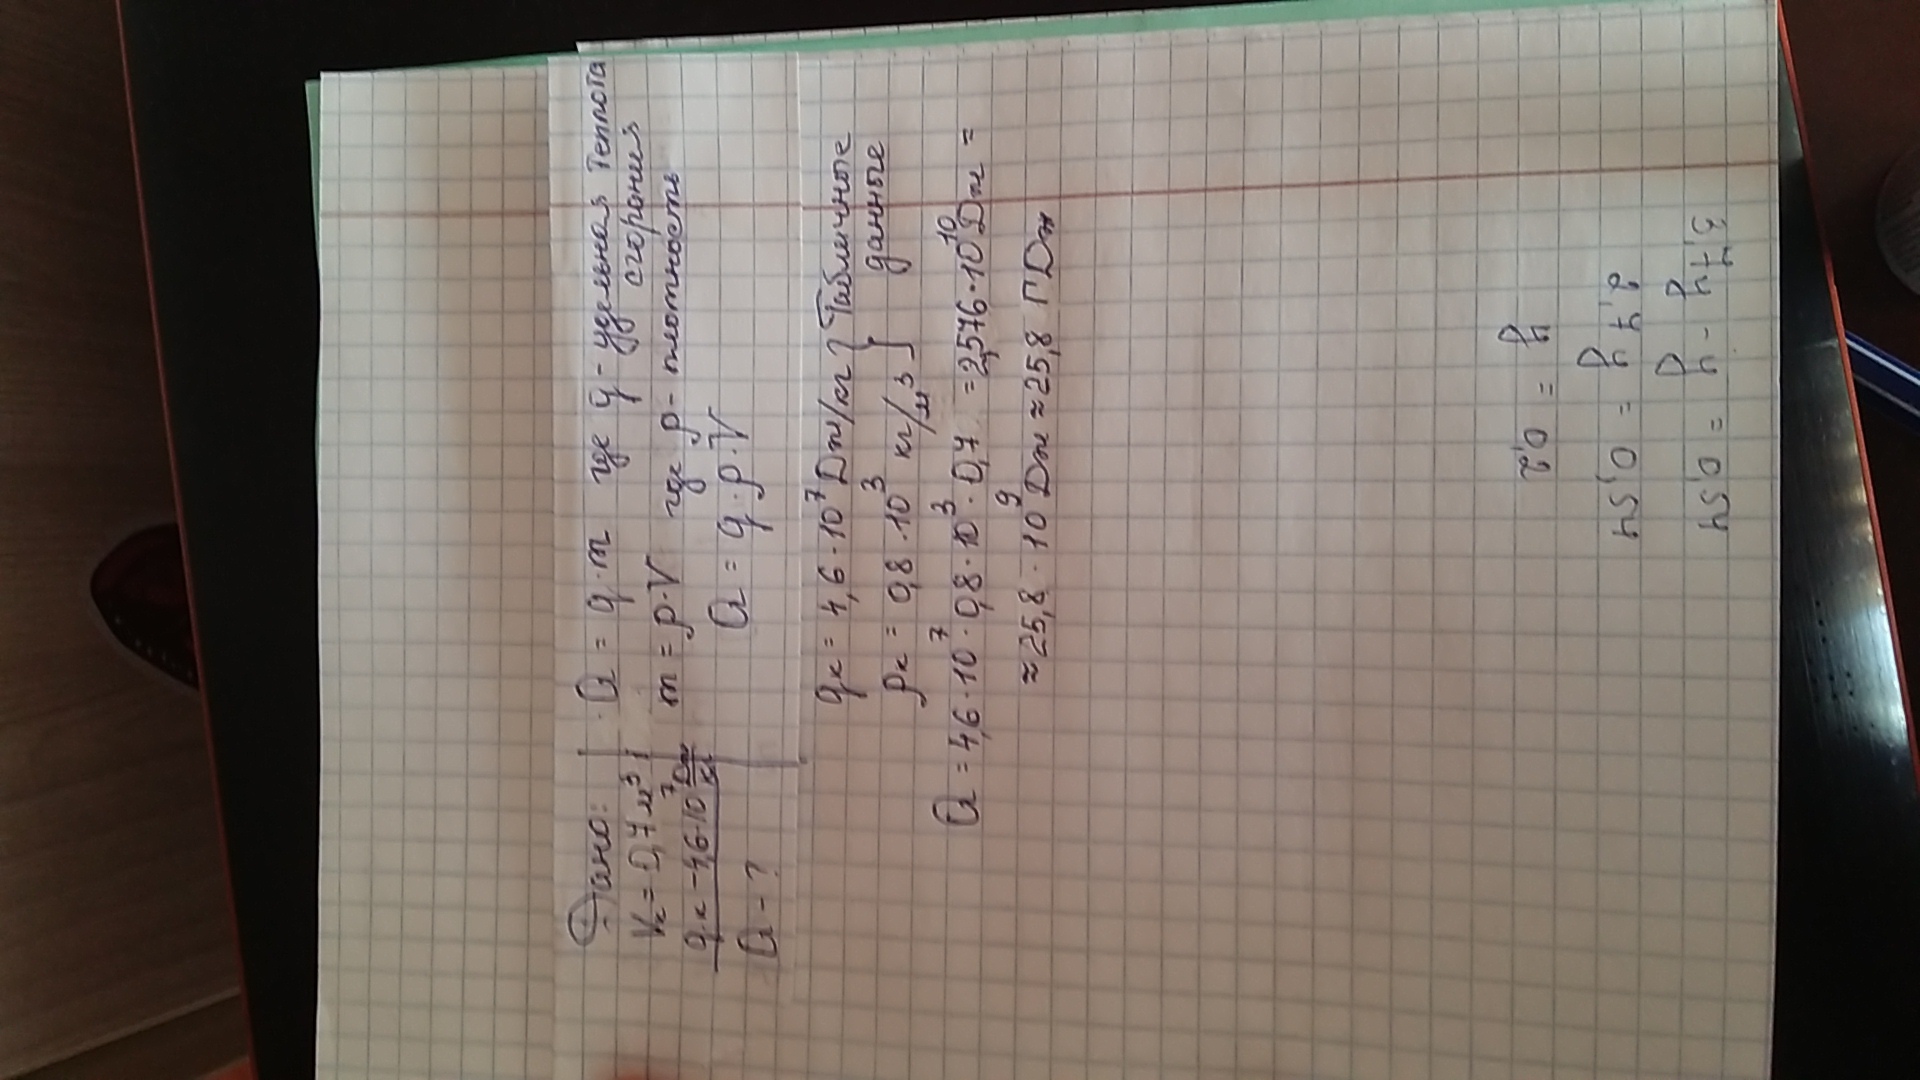 Дано:
Vк = 0,7 м³
qк - 4,6·10⁷ Дж/кг
Q - ?
Q = q·m где q - удельная теплота
сгорания
m = ρ·V где ρ - плотность
Q = q·ρ·V
qк = 4,6·10⁷ Дж/кг } Табличные
ρк = 0,8·10³ кг/м³ } данные
Q = 4,6·10⁷·0,8·10³·0,7 = 2,576·10¹⁰ Дж =
≈ 25,8·10⁹ Дж ≈ 25,8 ГДж
3,7y - y = 0,54
2,7y = 0,54
y = 0,2